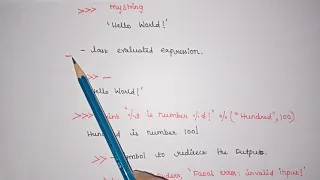 >>> mystring
'Hello World!'
_ - last evaluated expression.
>>> _
'Hello World!'
>>> print "%s is number %d!" % ("Hundred", 100)
Hundred is number 100!
>> - symbol to redirect the Outputs.
'Fatal error: invalid input!'